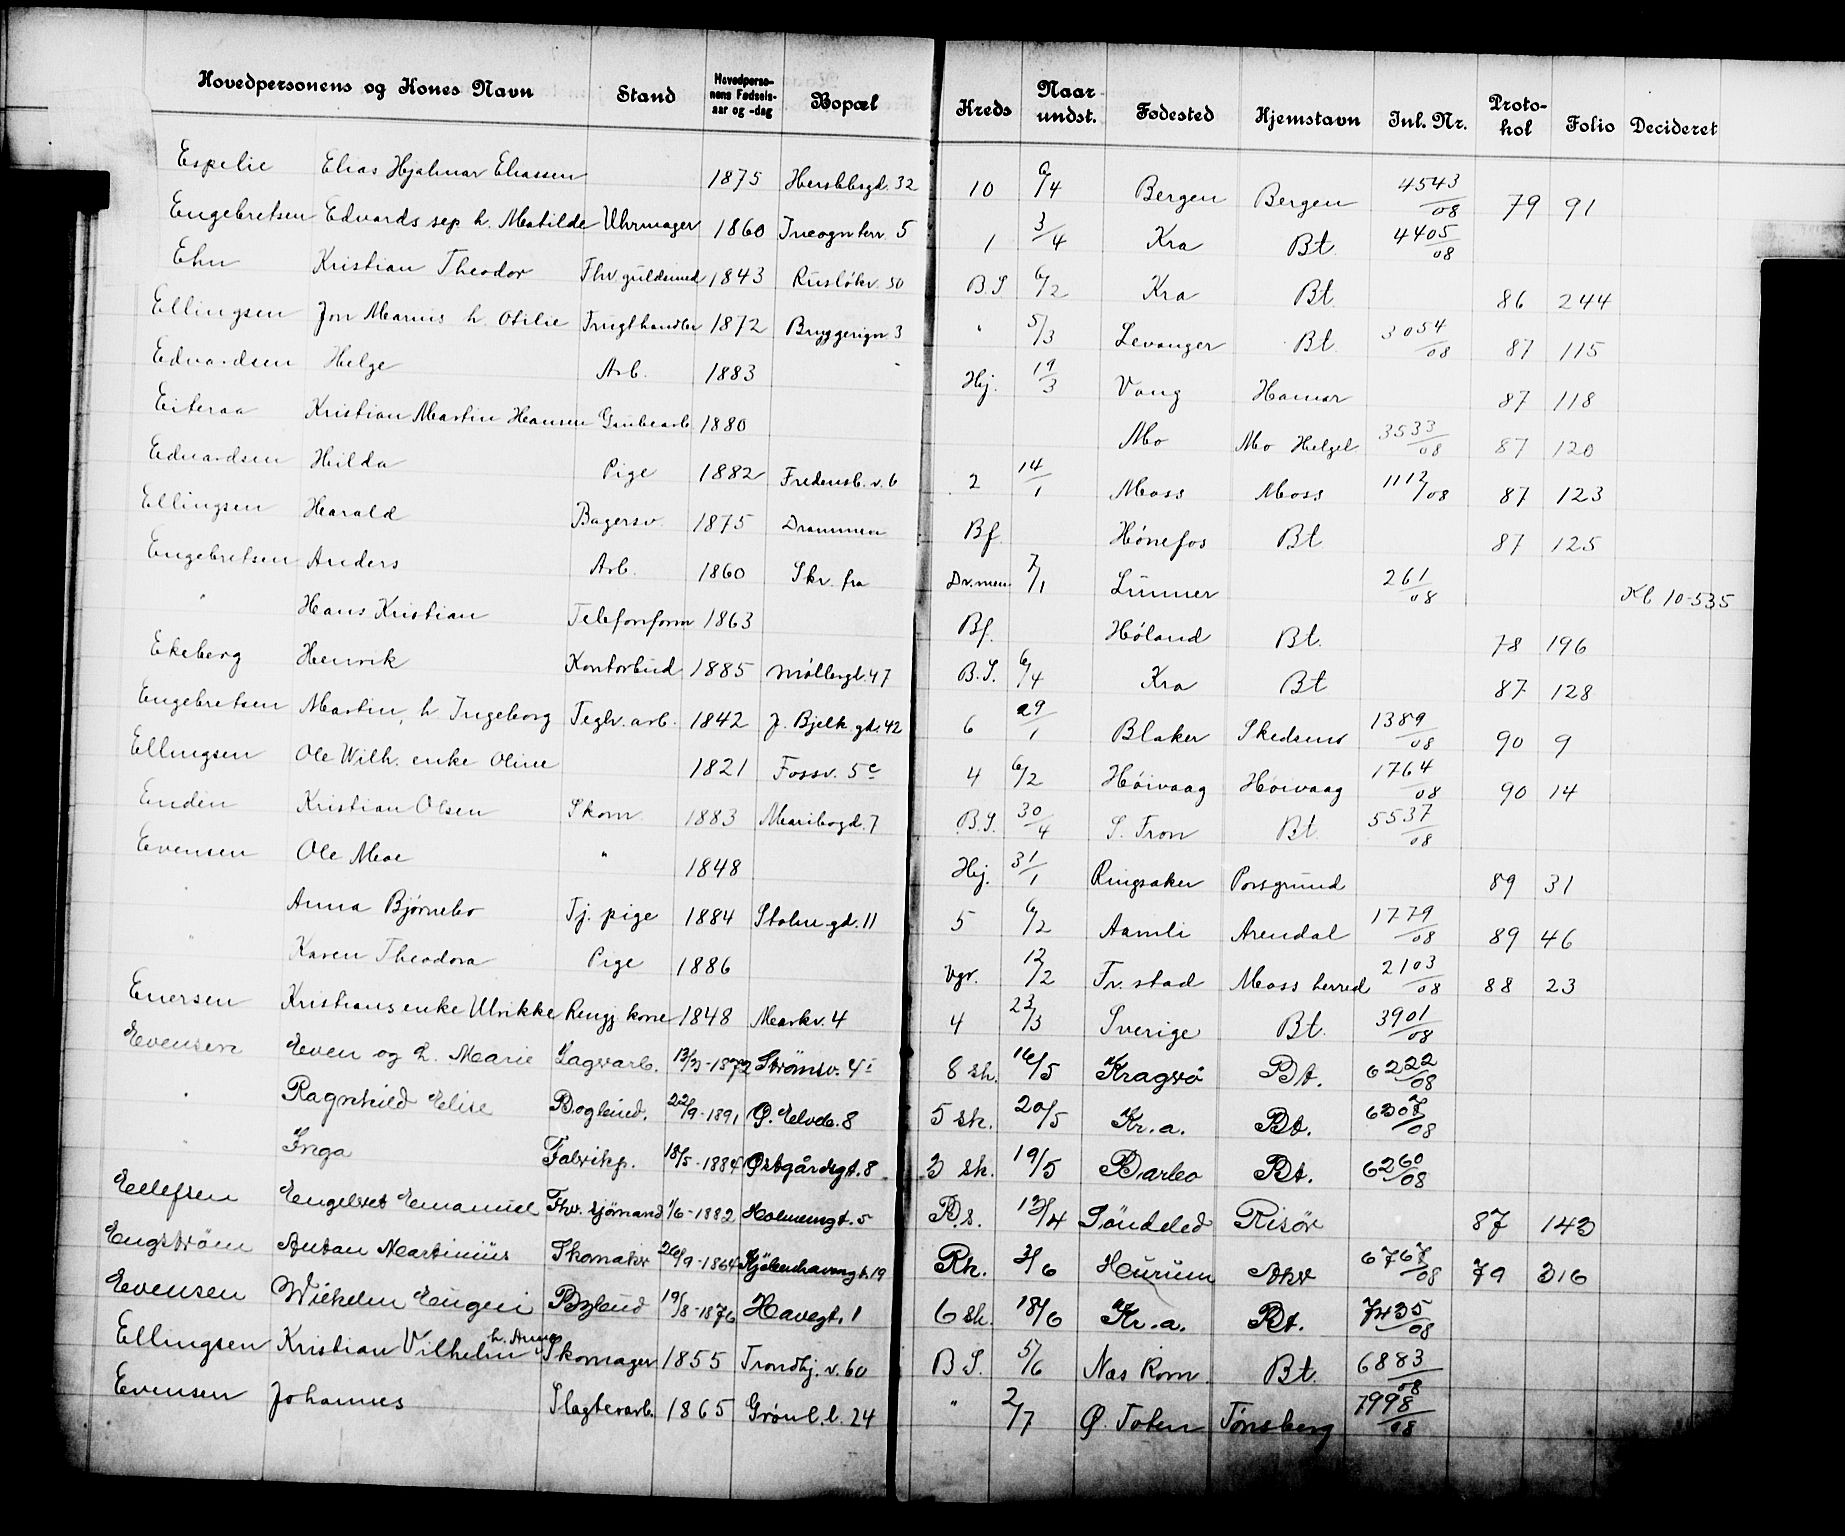 Hovedpersonens og Kones Navn Stand Hovedpersonens Fødsels-aar og -dag Bopæl Kreds Naar undst. Fødested Hjemstavn Inl. Nr. Protokol Folio Decideret
Espelie Elias Hjalmar Eliassen 1875 Herslebsgd. 32 10 6/4 Bergen Bergen 4543/08 79 91
Engebretsen Edvards sep h. Matilde Uhrmager 1860 Incognterr. 5 1 3/4 Kra Bt. 4405/08
Ehn Kristian Theodor Fhv guldsmed 1843 Rusløkv. 50 B.S 6/2 Kra Bt. 86 244
Ellingsen Jon Marius h. Otilie Frugthandler 1872 Bryggerign 3 " 5/3 Levanger Bt. 3054/08 87 115
Edvardsen Helge Arb. 1883 - Hj. 19/3 Vang Hamar 87 118
Eiteraa Kristian Martin Hansen Grubearb. 1880 Mo Mo Helgel. 3533/08 87 120
Edvardsen Hilda Pige 1882 Fredensb. v. 6 2 14/1 Moss Moss 1112/08 87 123
Ellingsen Harald Bagersv. 1875 Drammen Bf. Hønefos Bt 87 125
Engebretsen Anders Arb. 1860 Skr. fra Dr.men 7/1 Lunner 261/08 Kl 10-535
" Hans Kristian Telefonform 1863 Bf. Høland Bt. 78 196
Ekeberg Henrik Kontorbud 1885 Møllergt. 47 B.S. 6/4 Kra Bt 87 128
Engebretsen Martin, h Ingeborg Teglv. arb. 1842 J. Bjelk. gd. 42 6 29/1 Blaker Skedsmo 1389/08 90 9
Ellingsen Ole Wilh. enke Oline 1821 Fossv. 5c 4 6/2 Høivaag Høivaag 1764/08 90 14
Enden Kristian Olsen Skom. 1883 Maribogd. 7 B.S. 30/4 S. Fron Bt. 5537/08
Evensen Ole Moe " 1848 Hj. 31/1 Ringsaker Porsgrund 89 31
" Anna Bjørnebo Tj. pige 1884 Stolm. gd. 11 5 6/2 Aamli Arendal 1779/08 89 46
" Karen Theodora Pige 1886 Vgv. 12/2 Fr.stad Moss herred 2103/08 88 23
Enersen Kristians enke Ulrikke Rengj. kone 1848 Markv. 4 4 23/3 Sverige Bt. 3901/08
Evensen Even og h. Marie Sagvarb. 13/3-1872 Strømsv. 4 8 sk. 16/5 Kragerø Bt. 6222/08
" Ragnhild Elise Bogbind. 22/9-1891 Ø. Elveb. 8 5 sk. 20/5 Kr.a. Bt. 6307/08
" Inga Fabrikp. 18/5-1884 Østgårdsgt. 8 3 sk. 19/5 Barbo Bt. 6260/08
Ellefsen Engelvet Emanuel Fhv. sjømand 1/6-1882 Holmensgt. 5 B.s. 13/4 Söndeled Risör 87 143
Engström Anton Martinius Skomaker 26/9-1864 Kjöbenhavnsgt. 19 Rk. 3/6 Hurum Akr 6767/08 79 316
Evensen Wilhelm Eugen Bogbind 19/8-1876 Havegt. 1 6 sk. 18/6 Kr.a. Bt. 7435/08
Ellingsen Kristian Vilhelm h. Anna Skomager 1855 Trondhj. v. 60 B S. 5/6 Nas Rom. Bt. 6883/08
Evensen Johannes Slagterarb. 1865 Grønl. l. 24 " 2/7 Ø. Toten Tønsberg 7998/08